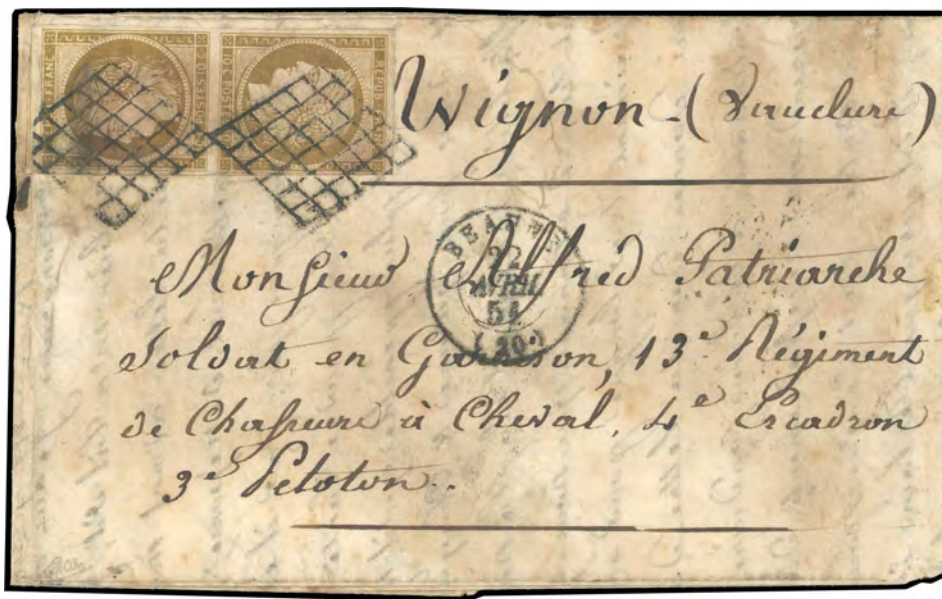 FRANC POSTES 10 REPUB. FRANC
Avignon - (Vaucluse)
BEAUNE
22
AVRIL
54
(20)
Monsieur Alfred Patriarche
Soldat en Garnison, 13e Régiment
de Chasseurs à Cheval, 4e Escadron
3e Peloton..